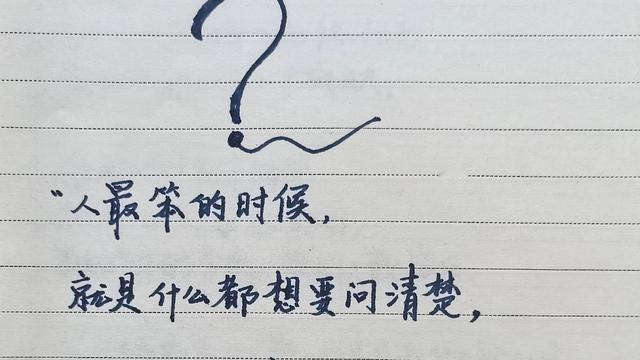 ?
“人最笨的时候,
就是什么都想要问清楚,